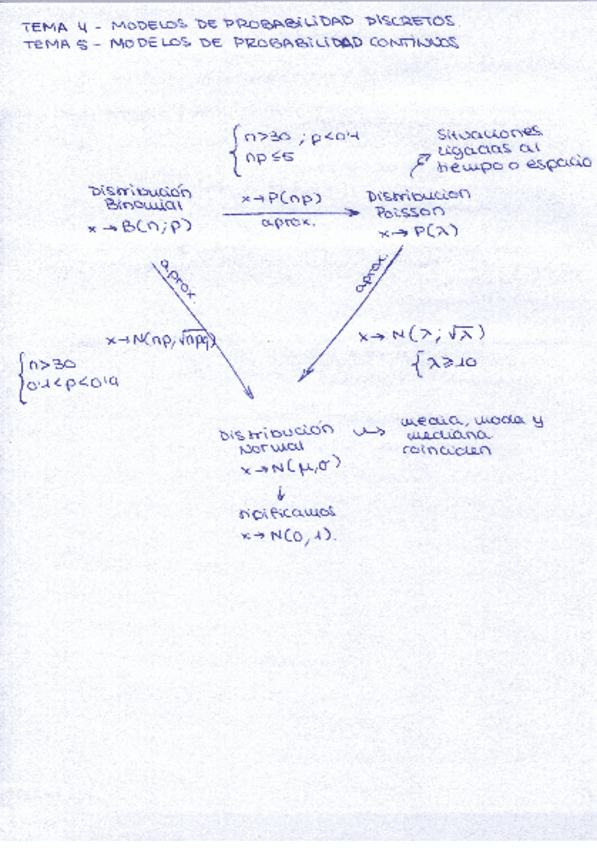 TEMA 4 - MODELOS DE PROBABILIDAD DISCRETOS.
TEMA 5 - MODELOS DE PROBABILIDAD CONTINUOS
{ n>30 ; p<0'1
np≤5
Situaciones
ligadas al
tiempo o espacio
Distribución
Binomial
x→B(n;p)
x→P(np)
aprox.
Distribución
Poisson
x→P(λ)
aprox.
aprox.
x→N(np;√npq)
{ n>30
0'1<p<0'9
x→N(λ;√λ)
{ λ≥10
Distribución
Normal
x→N(μ,σ)
media, moda y
mediana
coinciden
↓
tipificamos
x→N(0,1).